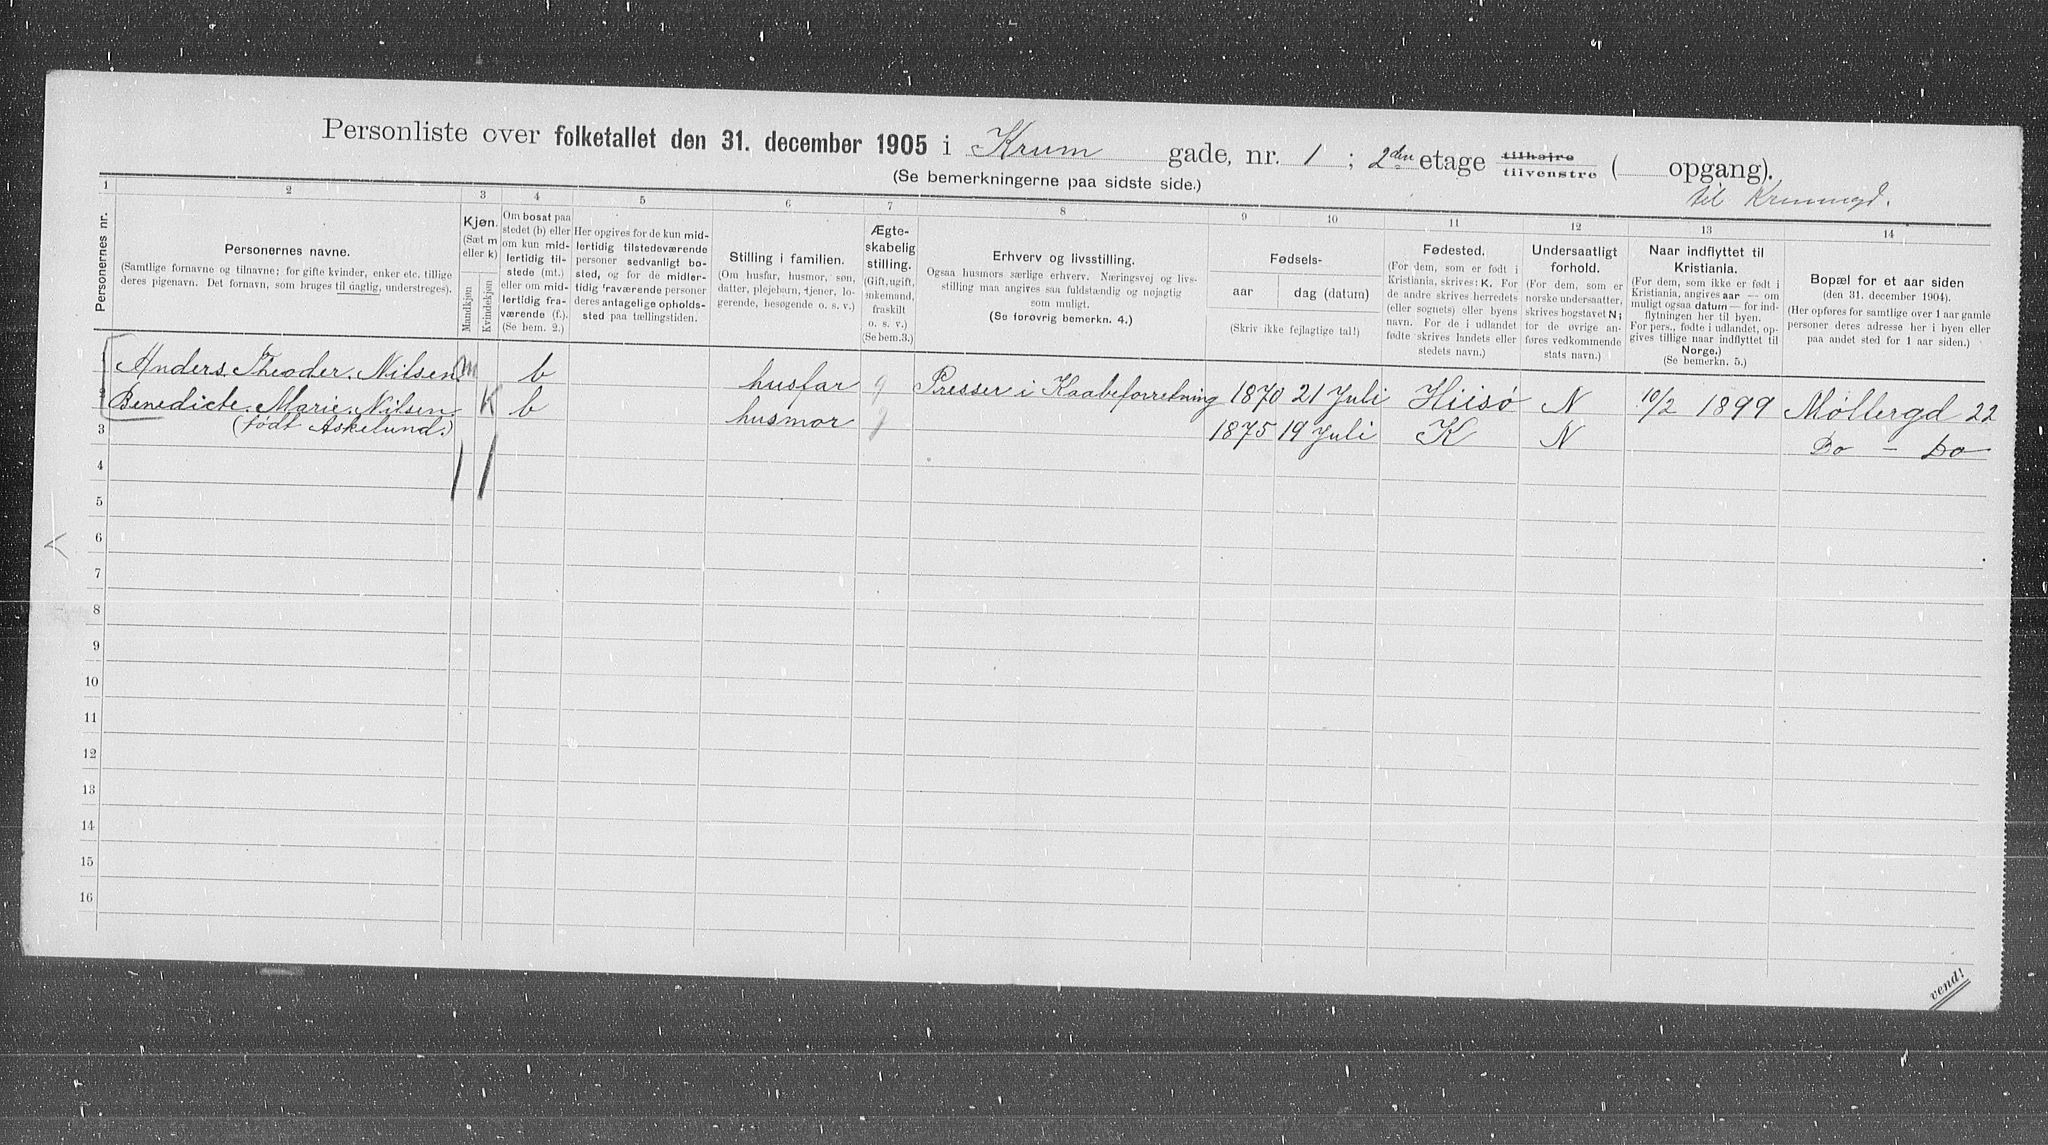 Personliste over folketallet den 31. december 1905 i Krum gade, nr. 1 ; 2den etage tilhøjre tilvenstre ( opgang).
(Se bemerkningerne paa sidste side.)
til Krumgd.
1 2 3 4 5 6 7 8 9 10 11 12 13 14
Personernes nr.
Personernes navne.
(Samtlige fornavne og tilnavne; for gifte kvinder, enker etc. tillige
deres pigenavn. Det fornavn, som bruges til daglig, understreges).
Kjøn.
(Sæt m
eller k)
Mandkjøn
Kvindekjøn
Om bosat paa
stedet (b) eller
om kun mid-
lertidig til-
stede (mt.)
eller om mid-
lertidig fra-
værende (f.).
(Se bem. 2.)
Her opgives for de kun mid-
lertidig tilstedeværende
personer sedvanligt bo-
sted, og for de midler-
tidig fraværende personer
deres antagelige opholds-
sted paa tællingstiden.
Stilling i familien.
(Om husfar, husmor, søn,
datter, plejebarn, tjener, lo-
gerende, besøgende o. s. v.)
Ægte-
skabelig
stilling.
(Gift, ugift,
enkemand,
fraskilt
o. s. v.)
(Se bem.3.)
Erhverv og livsstilling.
Ogsaa husmors særlige erhverv. Næringsvej og livs-
stilling maa angives saa fuldstændig og nøjagtig
som muligt.
(Se forøvrig bemerkn. 4.)
Fødsels-
aar
dag (datum)
(Skriv ikke fejlagtige tal!)
Fødested.
(For dem, som er født i
Kristiania, skrives: K. For
de andre skrives herredets
(eller sognets) eller byens
navn. For de i udlandet
fødte skrives landets eller
stedets navn.)
Undersaatligt
forhold.
(For dem, som er
norske undersaatter,
skrives bogstavet N;
for de øvrige an-
føres vedkommende
stats navn.)
Naar indflyttet til
Kristiania.
(For dem, som ikke er født i
Kristiania, angives aar — om
muligt ogsaa datum — for ind-
flytningen her til byen.
For pers., fødte i udlandet, op-
gives tillige naar indflyttet til
Norge.)
(Se bemerkn. 5.)
Bopæl for et aar siden
(den 31. december 1904).
(Her opføres for samtlige over 1 aar gamle
personer deres adresse her i byen eller
paa andet sted for 1 aar siden.)
1 Anders. Theoder. Nilsen. m b husfar g Presser i Kaabeforretning 1870 21 Juli Hiisø N 10/2 1899 Møllergd 22
2 Benedicte. Marie. Nilsen. K b husmor g 1875 19 Juli K N Do – Do
3 (født Askelund.)
4
5
6
7
8
9
10
11
12
13
14
15
16
vend!